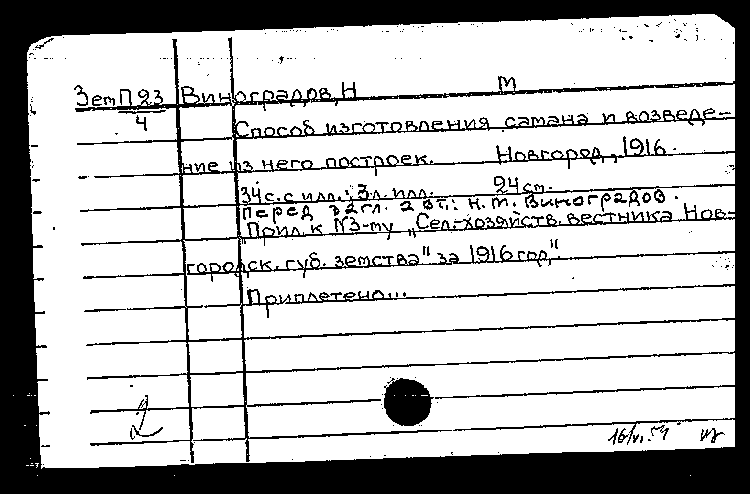 Зем П 23 Виноградов, Н М
4
Способ изготовления самана и возведе-
ние из него построек. Новгород, 1916.
34с. с илл.; 3л. илл. 24 см.
Перед загл. авт.: Н. М. Виноградов.
"Прил. к №3-му „Сел.-хозяйств. вестника Нов-
городск. губ. земства" за 1916 год".
Приплетено...
2
16/VI.54